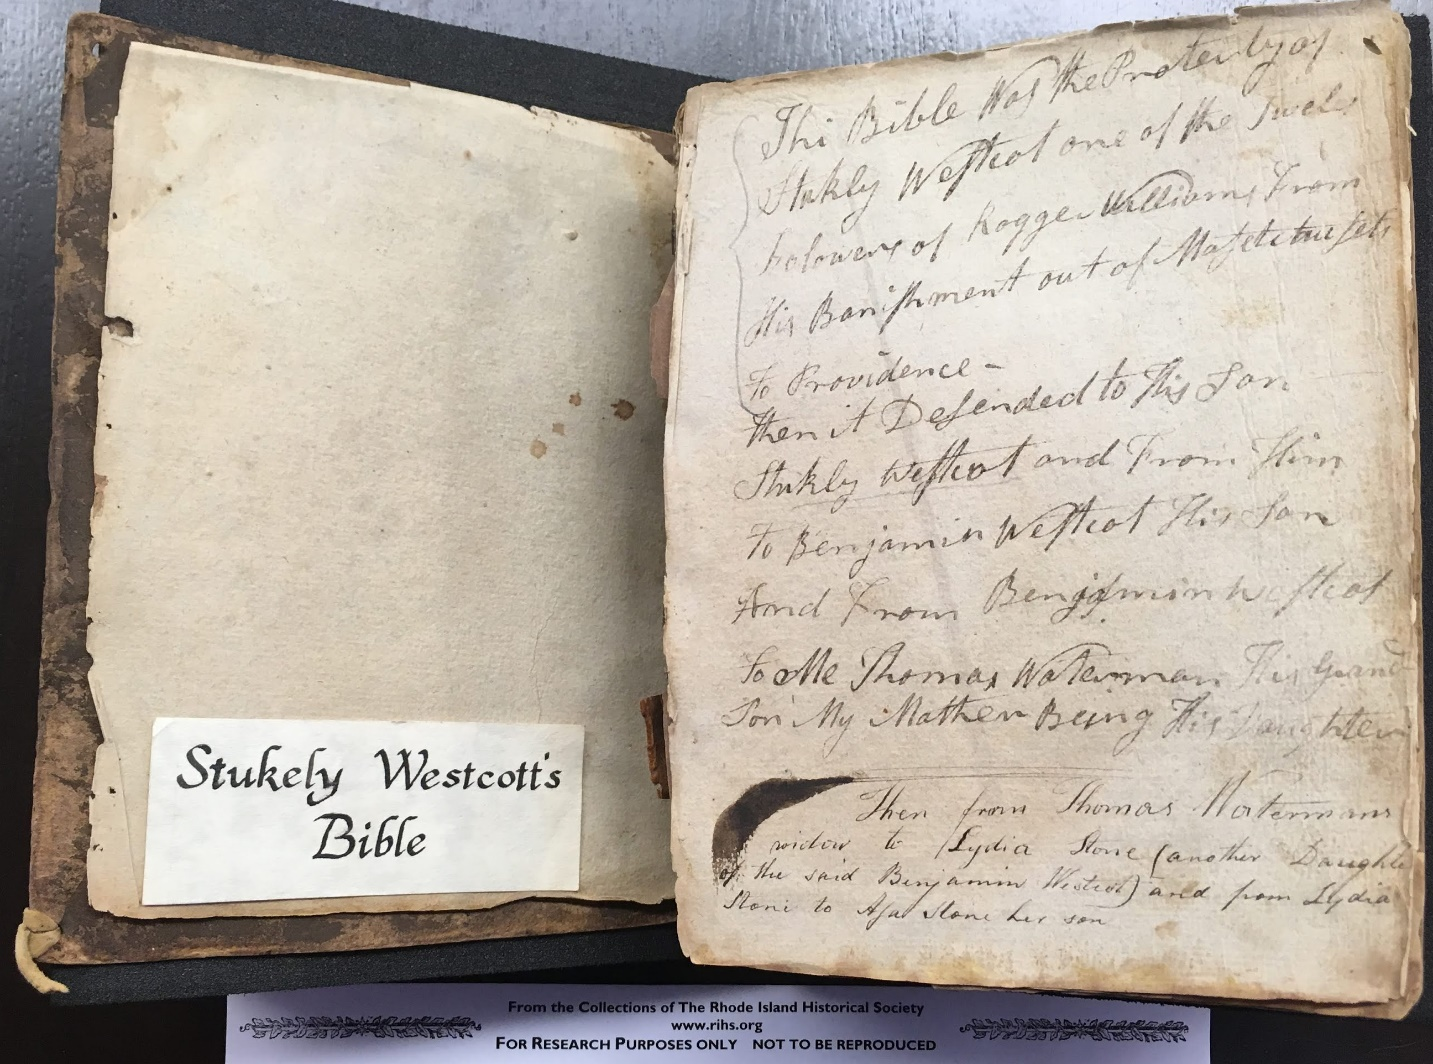 Stukely Westcott's
Bible
Thi Bible Was the Proterty of
Stukly Westcot one of the Twelv
Folowers of Rogger Williams From
His Banishment out of Masetetusets
To Providence -
then it Desended to His Son
Stukly Westcot and From Him
To Benjamin Westcot His Son
And From Benjamin Westcot
To Me Thomas Waterman His Grand
Son My Mother Being His Daughter
Then from Thomas Watermans
widow to Lydia Stone (another Daughte
of the said Benjamin Westcot) and from Lydia
Stone to Asa Stone her son
From the Collections of The Rhode Island Historical Society
www.rihs.org
FOR RESEARCH PURPOSES ONLY NOT TO BE REPRODUCED